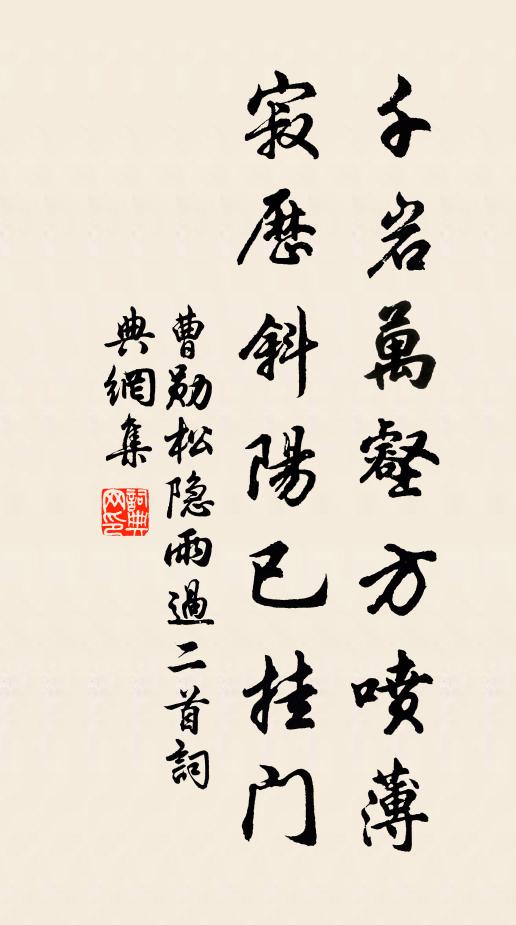 千岩萬壑方噴薄
寂歷斜陽已挂门
曹勛松隐雨過二首詞
典網集
詞典
网印